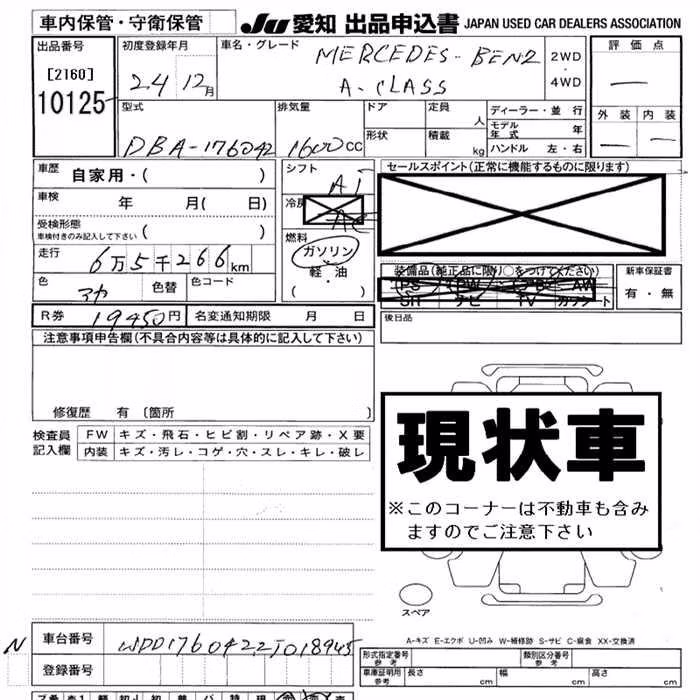 車内保管・守衛保管
JU 愛知 出品申込書 JAPAN USED CAR DEALERS ASSOCIATION
出品番号
[2160]
10125
初度登録年月
24 12月
車名・グレード
MERCEDES-BENZ
A-CLASS
2WD
・
4WD
評価点
―
外装 内装
― ―
型式
DBA-176042
排気量
1600cc
ドア
形状
定員 人
積載 kg
ディーラー・並行
モデル年式 年
ハンドル 左・右
車歴 自家用・( )
車検 年 月( 日)
受検形態
車検付きのみ記入して下さい ( )
走行 6万5千266km
色 アカ 色替 色コード
シフト
AT
冷房
AC
燃料
ガソリン
・
軽・油
( )
セールスポイント(正常に機能するものに限ります)
装備品(純正品に限り○をつけてください)
PS PW AW
SR ナビ TV カセット
新車保証書
有・無
R券 19450円 名変通知期限 月 日
後日品
注意事項申告欄(不具合内容等は具体的に記入して下さい)
修復歴 有〔箇所 〕
検査員
記入欄
FW キズ・飛石・ヒビ割・リペア跡・X要
内装 キズ・汚レ・コゲ・穴・スレ・キレ・破レ
現状車
※このコーナーは不動車も含み
ますのでご注意下さい
スペア
N
車台番号 WDD1760422J018945
登録番号
A-キズ E-エクボ U-凹み W-補修跡 S-サビ C-腐食 XX-交換済
形式指定番号
参考
類別区分番号
参考
車庫証明用
参考
長さ cm 幅 cm 高さ cm